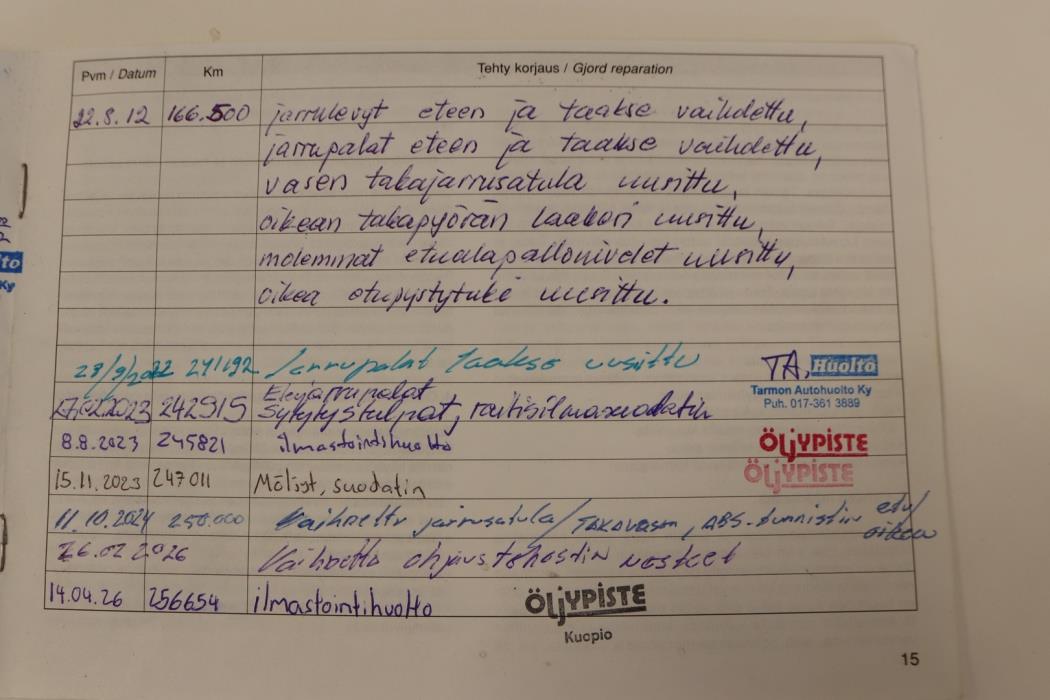 Pvm / Datum Km Tehty korjaus / Gjord reparation
22.8.12 166.500 jarrulevyt eteen ja taakse vaihdettu,
jarrupalat eteen ja taakse vaihdettu,
vasen takajarrusatula uusittu,
oikean takapyörän laakeri uusittu,
molemmat etualapallonivelet uusittu,
oikea etupystytuke uusittu.
23/9/2022 241192 Jarrupalat taakse uusittu TA, Huolto
Tarmon Autohuolto Ky
Puh. 017-361 3889
Etujarrupalat
17.02.2023 242915 Sytytystulpat, raitisilmasuodatin
8.8.2023 245821 ilmastointihuolto ÖLJYPISTE
ÖLJYPISTE
15.11.2023 247011 Möljyt, suodatin
11.10.2024 250.000 Vaihdettu jarrusatula/TAKAVASEN, ABS-tunnistin etu/
oikea
26.02 2026 Vaihdettu ohjaustehostin nesteet
14.04.26 256654 ilmastointihuolto ÖLJYPISTE
Kuopio
15
to
Ky